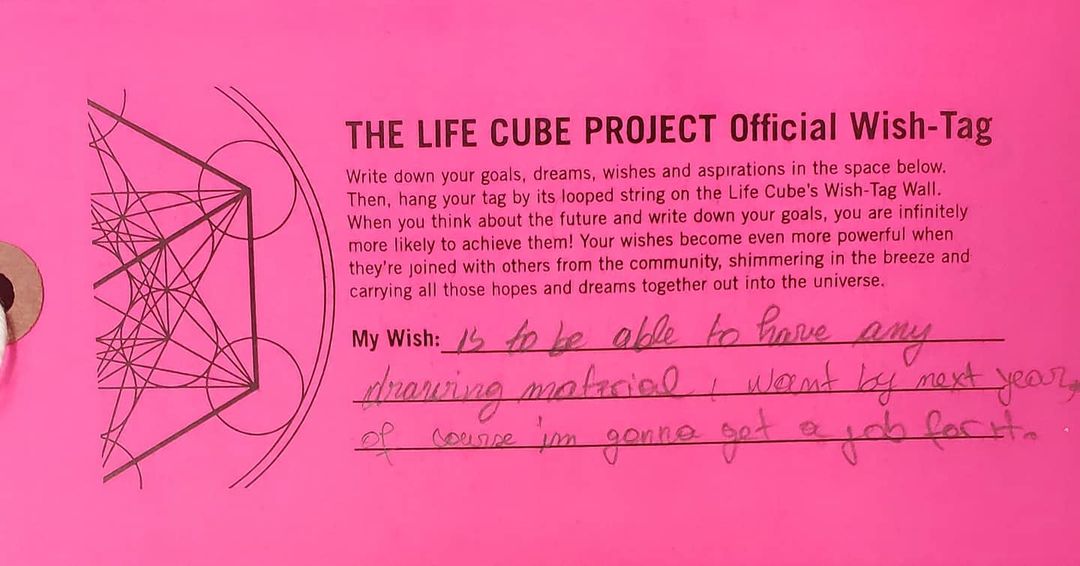 THE LIFE CUBE PROJECT Official Wish-Tag
Write down your goals, dreams, wishes and aspirations in the space below.
Then, hang your tag by its looped string on the Life Cube's Wish-Tag Wall.
When you think about the future and write down your goals, you are infinitely
more likely to achieve them! Your wishes become even more powerful when
they're joined with others from the community, shimmering in the breeze and
carrying all those hopes and dreams together out into the universe.
My Wish: is to be able to have any
drawing material i want by next year,
of course im gonna get a job for it.